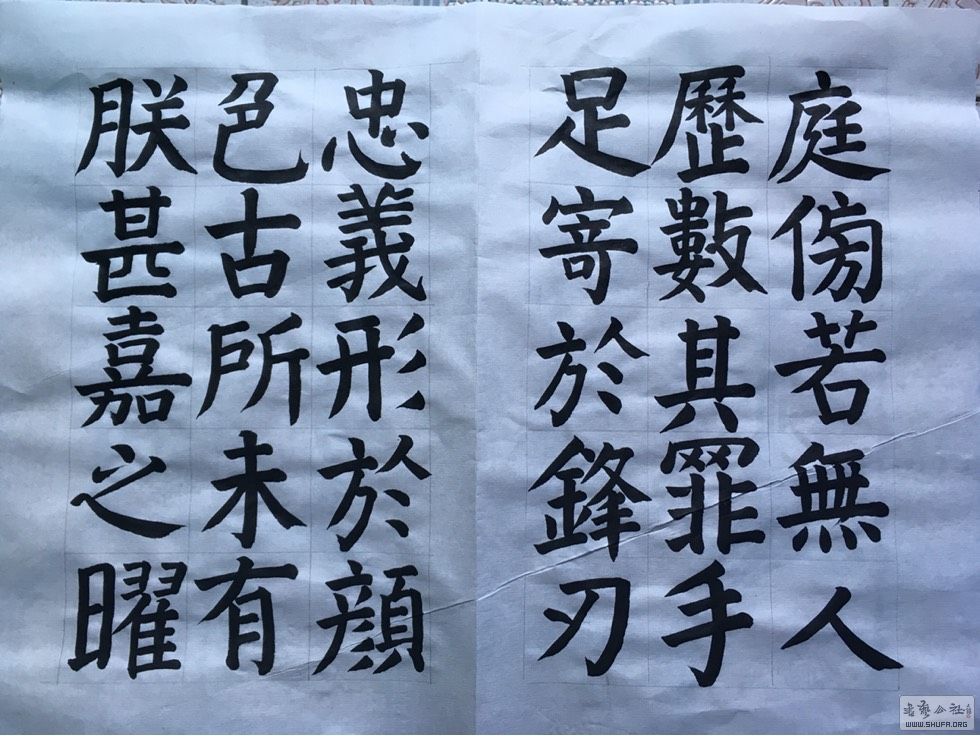 庭傍若無人
歷數其罪手
足寄於鋒刃
忠義形於顔
色古所未有
朕甚嘉之曜
书艺公社
WWW.SHUFA.ORG